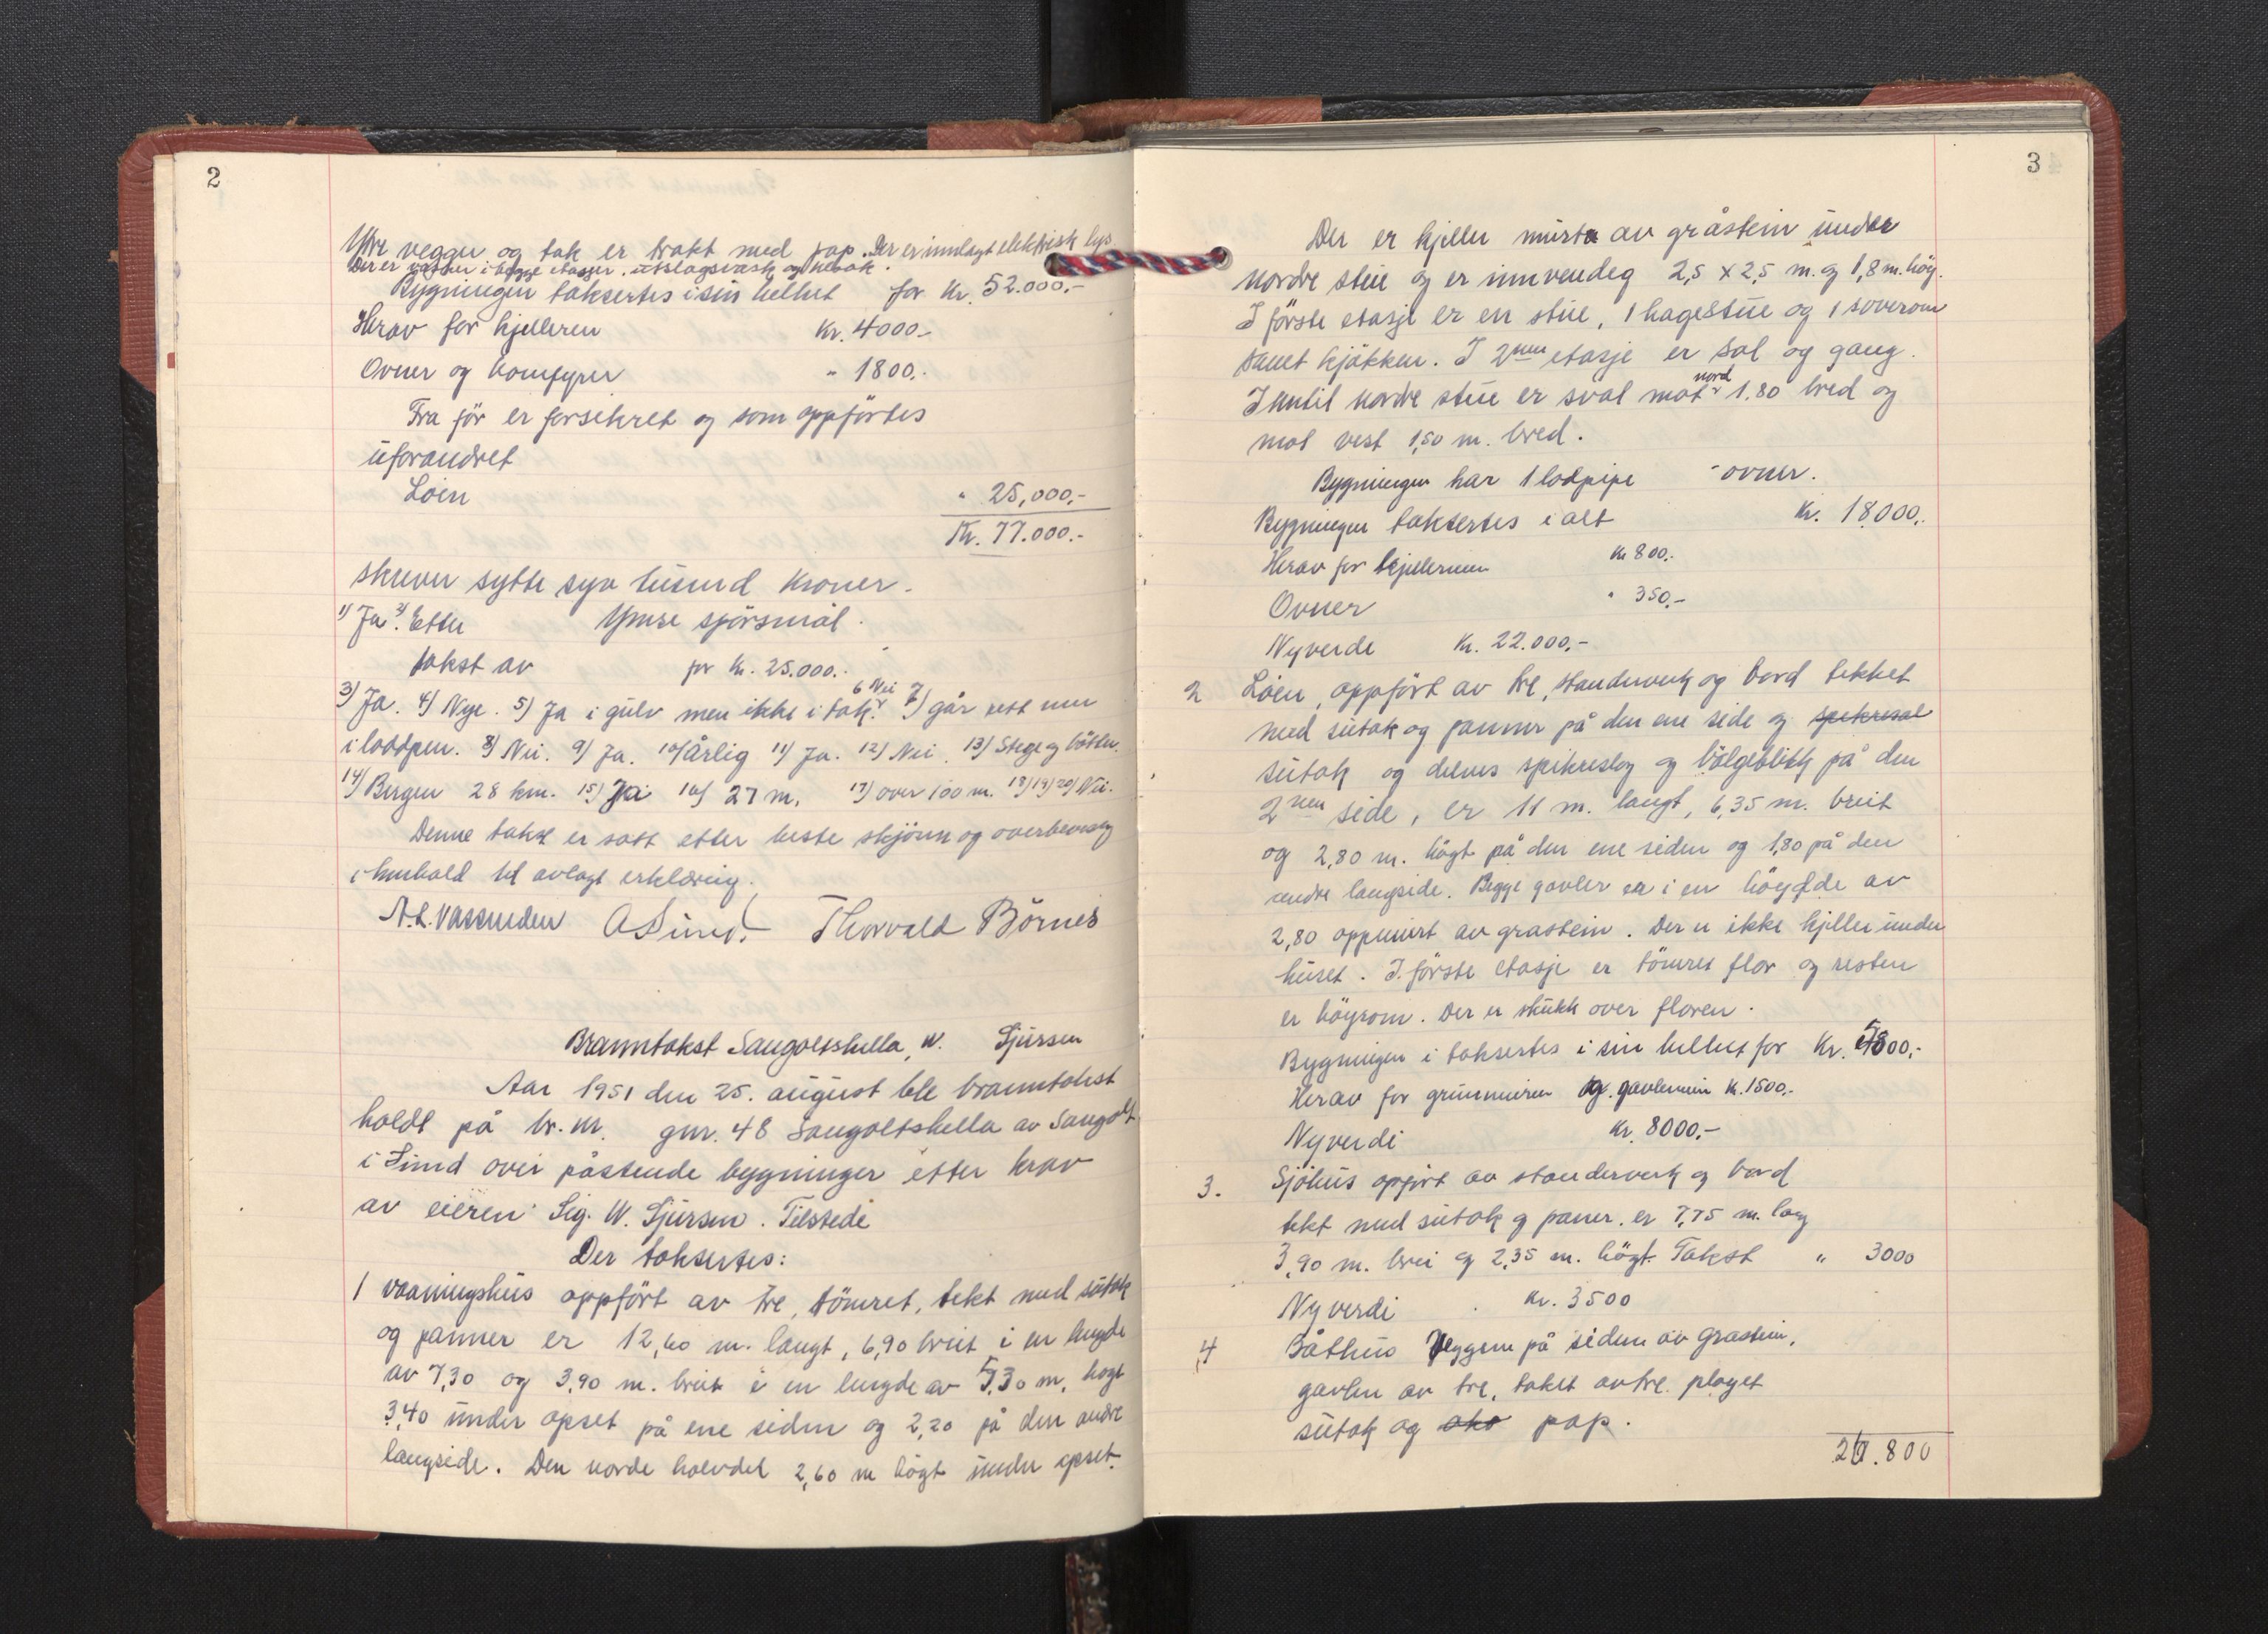 2
Ytre vegger og tak er trakt med pap. Der er innlagt elektrisk lys
Der er vatten i begge etasjer. utslagsvask og
Bygningen taksertes i sin helhet for Kr. 52.000,-
Herav for kjelleren Kr. 4000.-
Ovner og komfyrer " 1800.-
Fra för er forsikret og som oppförtes
uforandret
Löen " 25,000,-
Kr. 77.000.-
skriver sytte syv tusend kroner.
1) Ja 2) Etter Ymse spörsmål.
takst av for Kr. 25.000.-
3) Ja. 4) Nye. 5) Ja i gulv men ikke i tak. 6 Nei 7) går rett ner
i loddpen. 8) Nei. 9) Ja. 10) årlig 11) Ja. 12) Nei. 13) Stege og bötter.
14) Bergen 28 km. 15) Ja 16) 27 m. 17) over 100 m. 18) 19) 20) Nei.
Denne takst er satt etter beste skjönn og overbevisng
i henhold til avlagt erklæring.
A. L. Vassenden A Sund. Thorvald Börnes
Branntakst Sangoltshella, W. Sjursen
Aar 1951 den 25. august ble branntakst
holdt på br. nr. gnr. 48 Sangoltshella av Sangolt
i Sund over påstende bygninger etter krav
av eieren Sig. W. Sjursen. Tilstede
Der taksertes:
1 vaaningshus oppfört av tre, tömret, tekt med sutak
og panner er 12,60 m. langt, 6,90 breit i en lengde
av 7,30 og 3,90 m. breit i en lengde av 5,30 m. högt
3,40 under opset på ene siden og 2,20 på den andre
langside. Den norde halvdel 2,60 m högt under opset.
3
Der er kjeller murta av gråstein under
nordre stue og er innvendeg 2,5 x 2,5 m. og 1,8 m. hög.
I förste etasje er en stue, 1 hagestue og 1 soverom
samt kjökken. I 2nen etasje er sal og gang.
Inntil nordre stue er sval mot nord 1.80 bred og
mot vest 1,50 m. bred.
Bygningen har 1 lodpipe - ovner.
Bygningen taksertes i alt Kr. 18000,-
Herav for kjelleren Kr 800.-
Ovner " 350.-
Nyverde Kr. 22.000,-
2 Löen, oppfört av tre, standerverk og bord tekket
med sutak og panner på den ene side og spekresal
sutak og delvis spikreslag og bölgeblikk på den
2nen side, er 11 m. langt, 6,35 m. breit
og 2,80 m. högt på den ene siden og 1,80 på den
andre langside. Begge gavler er i en höyde av
2,80 oppmurt av grastein. Der er ikke kjeller under
huset. I förste etasje er tömret flor og resten
er höyrom. Der er stukk over floren.
Bygningen i taksertes i sin helhet for Kr. 5800,-
Herav for grunnmuren og gavlemur Kr. 1500.-
Nyverdi Kr. 8000.-
3. Sjöhus opfört av standerverk og bord
tekt med sutak og paner. er 7,75 m. lang
3,90 m. brei og 2,35 m. högt. Takst " 3000
Nyverdi Kr. 3500
4 Båthus Veggene på siden av Grastein,
gavlen av tre, taket av tre. pløyet
sutak og pap.
26.800